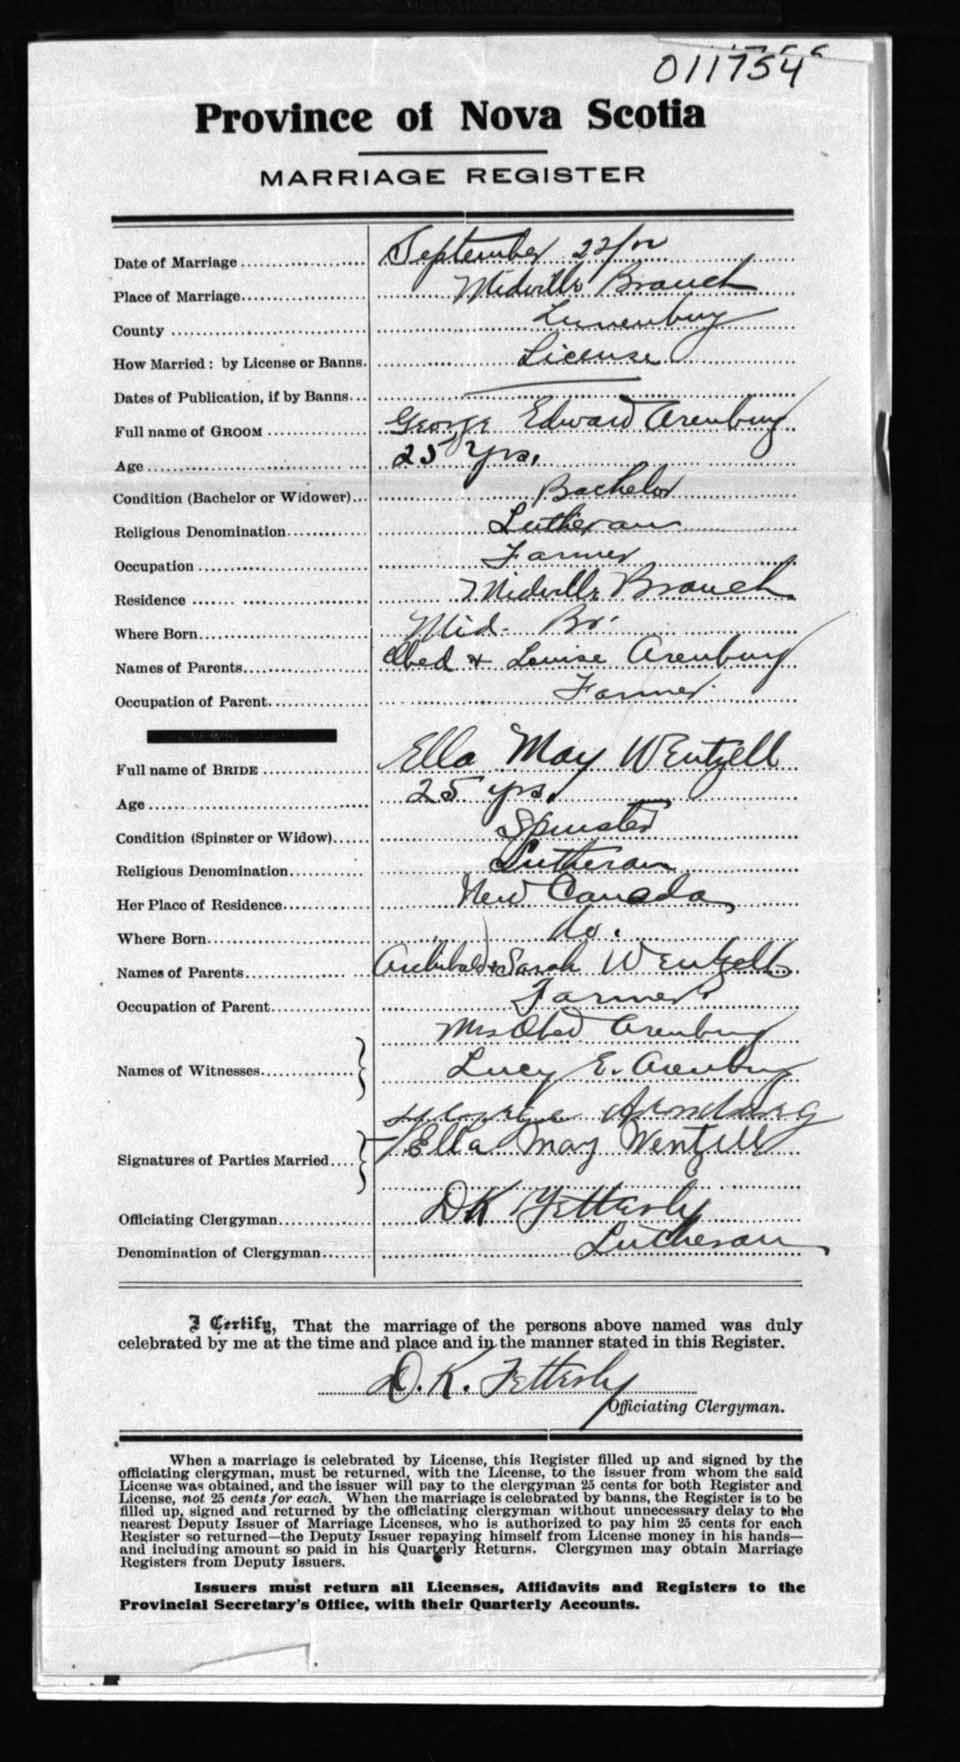 011754
Province of Nova Scotia
MARRIAGE REGISTER
Date of Marriage September 22/
Place of Marriage Midville Branch
County Lunenburg
How Married: by License or Banns. License
Dates of Publication, if by Banns
Full name of GROOM George Edward Arenburg
Age 25 Yrs.
Condition (Bachelor or Widower) Bachelor
Religious Denomination Lutheran
Occupation Farmer
Residence Midville Branch
Where Born Mid. Br.
Names of Parents Obed + Louise Arenburg
Occupation of Parent Farmer.
Full name of BRIDE Ella May Wentzell
Age 25 yrs.
Condition (Spinster or Widow) Spinster
Religious Denomination Lutheran
Her Place of Residence New Canada
Where Born do.
Names of Parents Archibald + Sarah Wentzell
Occupation of Parent Farmer
Mrs Obed Arenburg
Names of Witnesses Lucy E. Arenburg
Ella May Wentzell
Signatures of Parties Married
Officiating Clergyman D K Fetterly
Denomination of Clergyman Lutheran
I Certify, That the marriage of the persons above named was duly
celebrated by me at the time and place and in the manner stated in this Register.
D. K. Fetterly
Officiating Clergyman.
When a marriage is celebrated by License, this Register filled up and signed by the
officiating clergyman, must be returned, with the License, to the issuer from whom the said
License was obtained, and the issuer will pay to the clergyman 25 cents for both Register and
License, not 25 cents for each. When the marriage is celebrated by banns, the Register is to be
filled up, signed and returned by the officiating clergyman without unnecessary delay to the
nearest Deputy Issuer of Marriage Licenses, who is authorized to pay him 25 cents for each
Register so returned—the Deputy Issuer repaying himself from License money in his hands—
and including amount so paid in his Quarterly Returns. Clergymen may obtain Marriage
Registers from Deputy Issuers.
Issuers must return all Licenses, Affidavits and Registers to the
Provincial Secretary's Office, with their Quarterly Accounts.